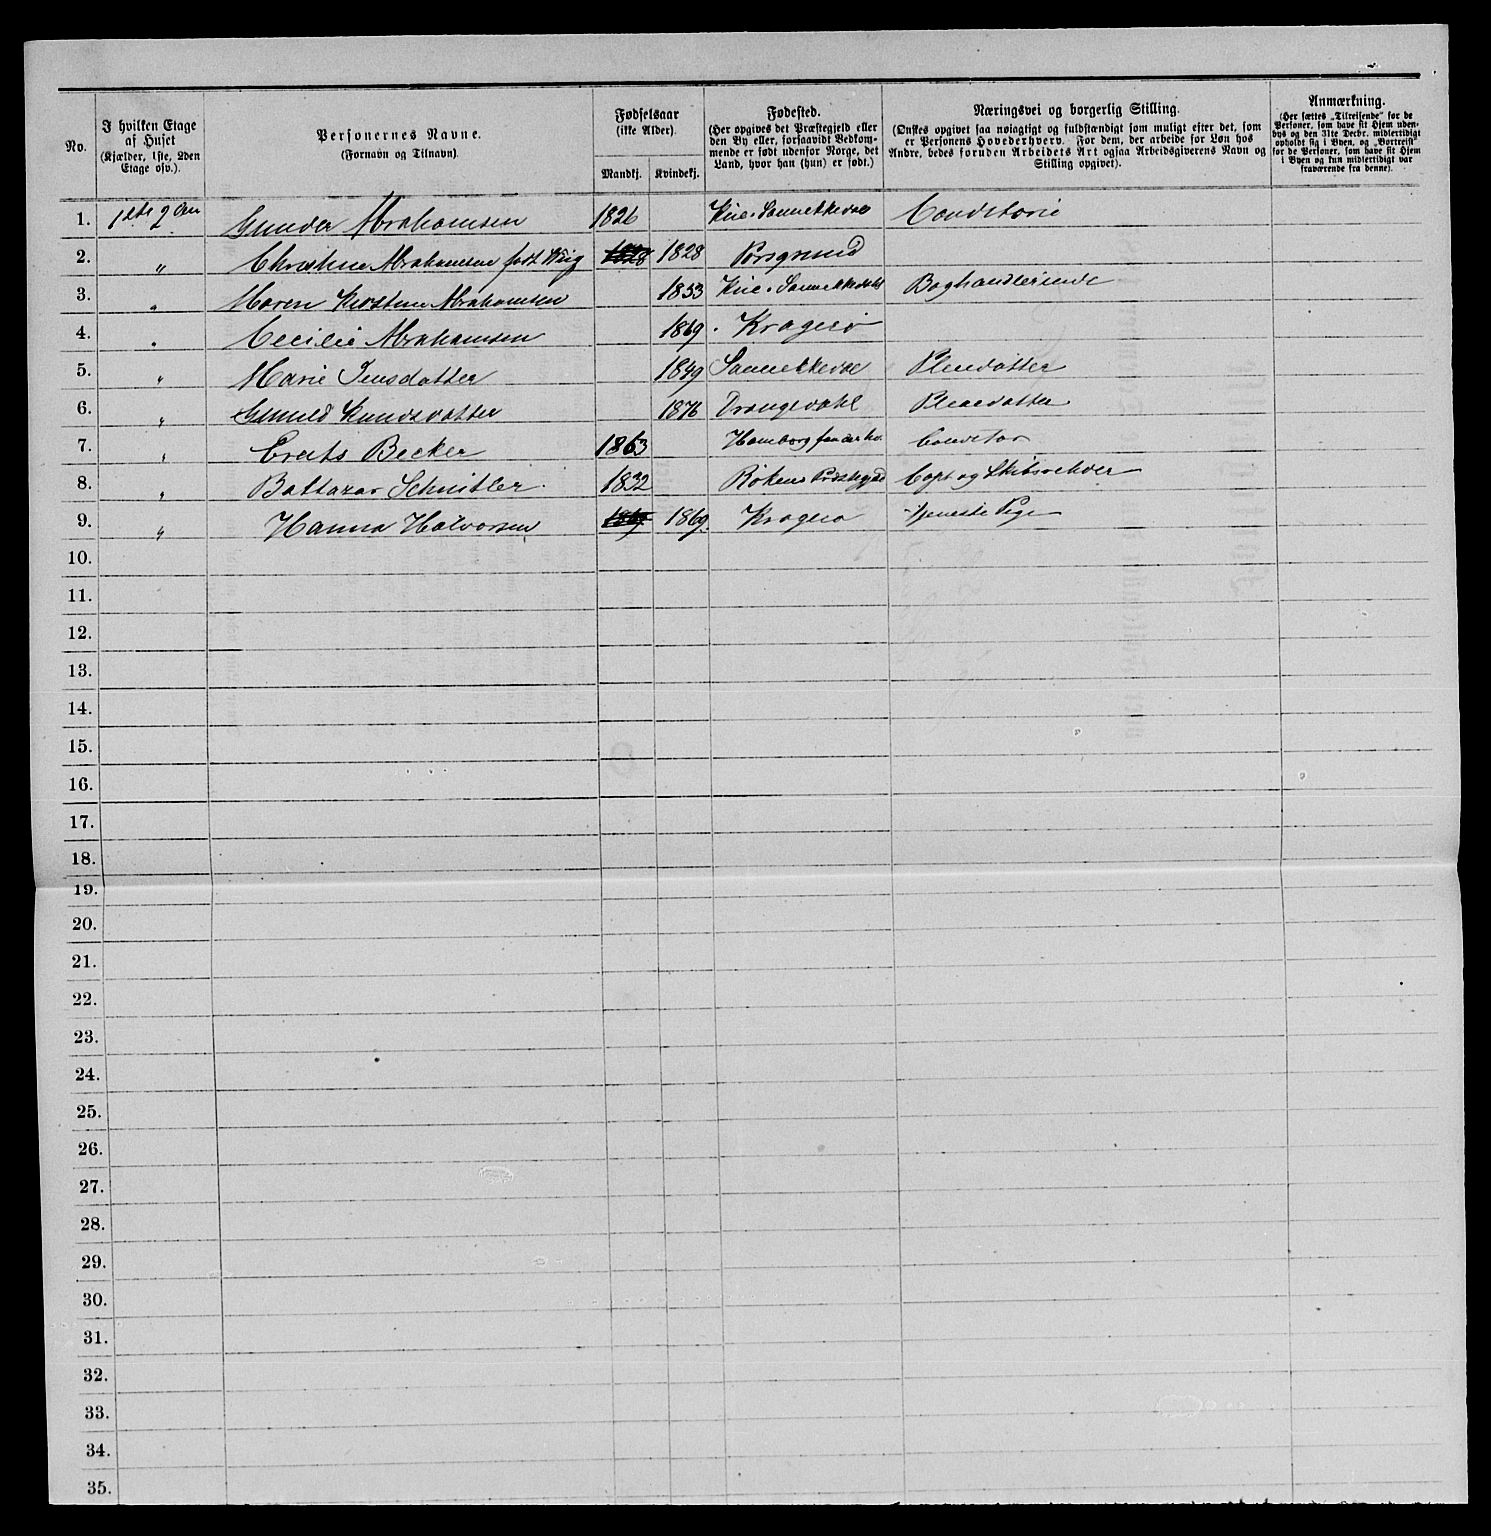 No. | I hvilken Etage af Huset (Kjælder, 1ste, 2den Etage osv.). | Personernes Navne. (Fornavn og Tilnavn). | Fødselsaar (ikke Alder). Mandkj. | Kvindekj. | Fødested. (Her opgives det Præstegjeld eller den By eller, forsaavidt Vedkommende er født udenfor Norge, det Land, hvor han (hun) er født.) | Næringsvei og borgerlig Stilling. (Ønskes opgivet saa nøiagtigt og fuldstændigt som muligt efter det, som er Personens Hovederhverv. For dem, der arbeide for Løn hos Andre, bedes foruden Arbeidets Art ogsaa Arbeidsgiverens Navn og Stilling opgivet). | Anmærkning. (Her sættes „Tilreisende“ for de Personer, som have sit Hjem udenbys og den 31te Decbr. midlertidigt opholdt sig i Byen, og „Bortreist“ for de Personer, som have sit Hjem i Byen og kun midlertidigt var fraværende fra denne).
1. | 1ste 2 | Gunder Abrahamsen | 1826 | Sannekedal | Conditorie
2. | „ | Christine Abrahamsen født | 1828 | 1828 | Porsgrund
3. | „ | Maren Kirstine Abrahamsen | 1853 | Sannekedahl | Boghandlerinde
4. | „ | Cecilie Abrahamsen | 1869 | Kragerø
5. | „ | Marie Jensdatter | 1849 | Sannekedal | Pleiedatter
6. | „ | Gunild Knudsdatter | 1876 | Drangedahl | Pleiedatter
7. | „ | Becker | 1863 | Hamborg | Conditor
8. | „ | Baltazar Schnitler | 1832 | Røken Præstegjeld | Capt og Skibsreder
9. | „ | Hanna Halvorsen | 1869 | 1869. | Kragerø | Tjeneste Pige
10.
11.
12.
13.
14.
15.
16.
17.
18.
19.
20.
21.
22.
23.
24.
25.
26.
27.
28.
29.
30.
31.
32.
33.
34.
35.